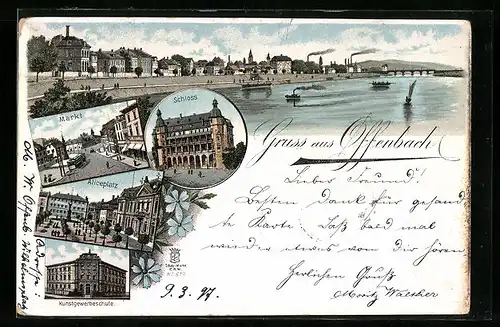 Gruss aus Offenbach
Schloss
Markt
Aliceplatz
Kunstgewerbeschule.
Lieber Freund!
Besten Dank für gesand
te Karte. Laß bald mal
wieder etwas von dir hören
Herlichen Gruß
Moritz Walther
9.3.97.
Adresse:
M. W. Offenb.